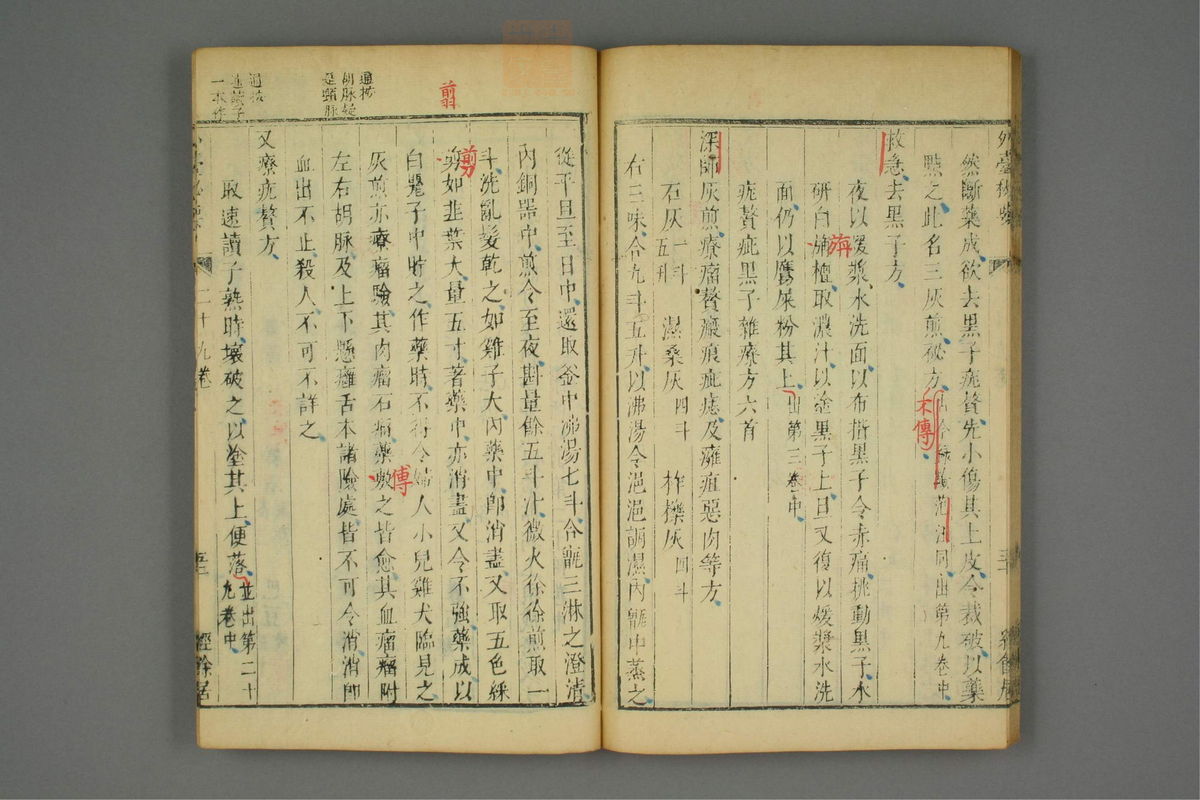 外臺秘要
然斷藥成欲去黑子疣贅先小傷其上皮令裁破以藥
點之此名三灰煎秘方
不傳
同出第九卷中
救急去黑子方
夜以暖漿水洗面以布揩黑子令赤痛挑動黑子水
研白旃檀取濃汁以塗黑子上旦又復以煖漿水洗
旃
面仍以鷹屎粉其上出第三卷中
疣贅疵黑子雜療方六首
深師灰煎療瘤贅瘢痕疵痣及癰疽惡肉等方
石灰一斗五升 濕桑灰四斗 柞櫟灰四斗
右三味合九斗五升以沸湯令浥浥調濕內甑中蒸之
從平旦至日中還取釜中沸湯七斗合甑三淋之澄清
內銅器中煎令至夜斟量餘五斗汁微火徐徐煎取一
斗洗亂髮乾之如雞子大內藥中即消盡又取五色綵
剪如韭葉大量五寸著藥中亦消盡又令不強藥成以
剪
白甖子中貯之作藥時不得令婦人小兒雞犬臨見之
灰煎亦療瘤驗其肉瘤石瘤藥敷之皆愈其血瘤瘤附
傅
左右胡脉及上下懸癰舌本諸險處皆不可令消消即
血出不止殺人不可不詳之
又療疣贅方
取速讀子熟時壞破之以塗其上便落並出第二十九卷中
二十九卷
經餘居
翦
通按
胡脉疑
是頸脉
通按
速讀子
一本作